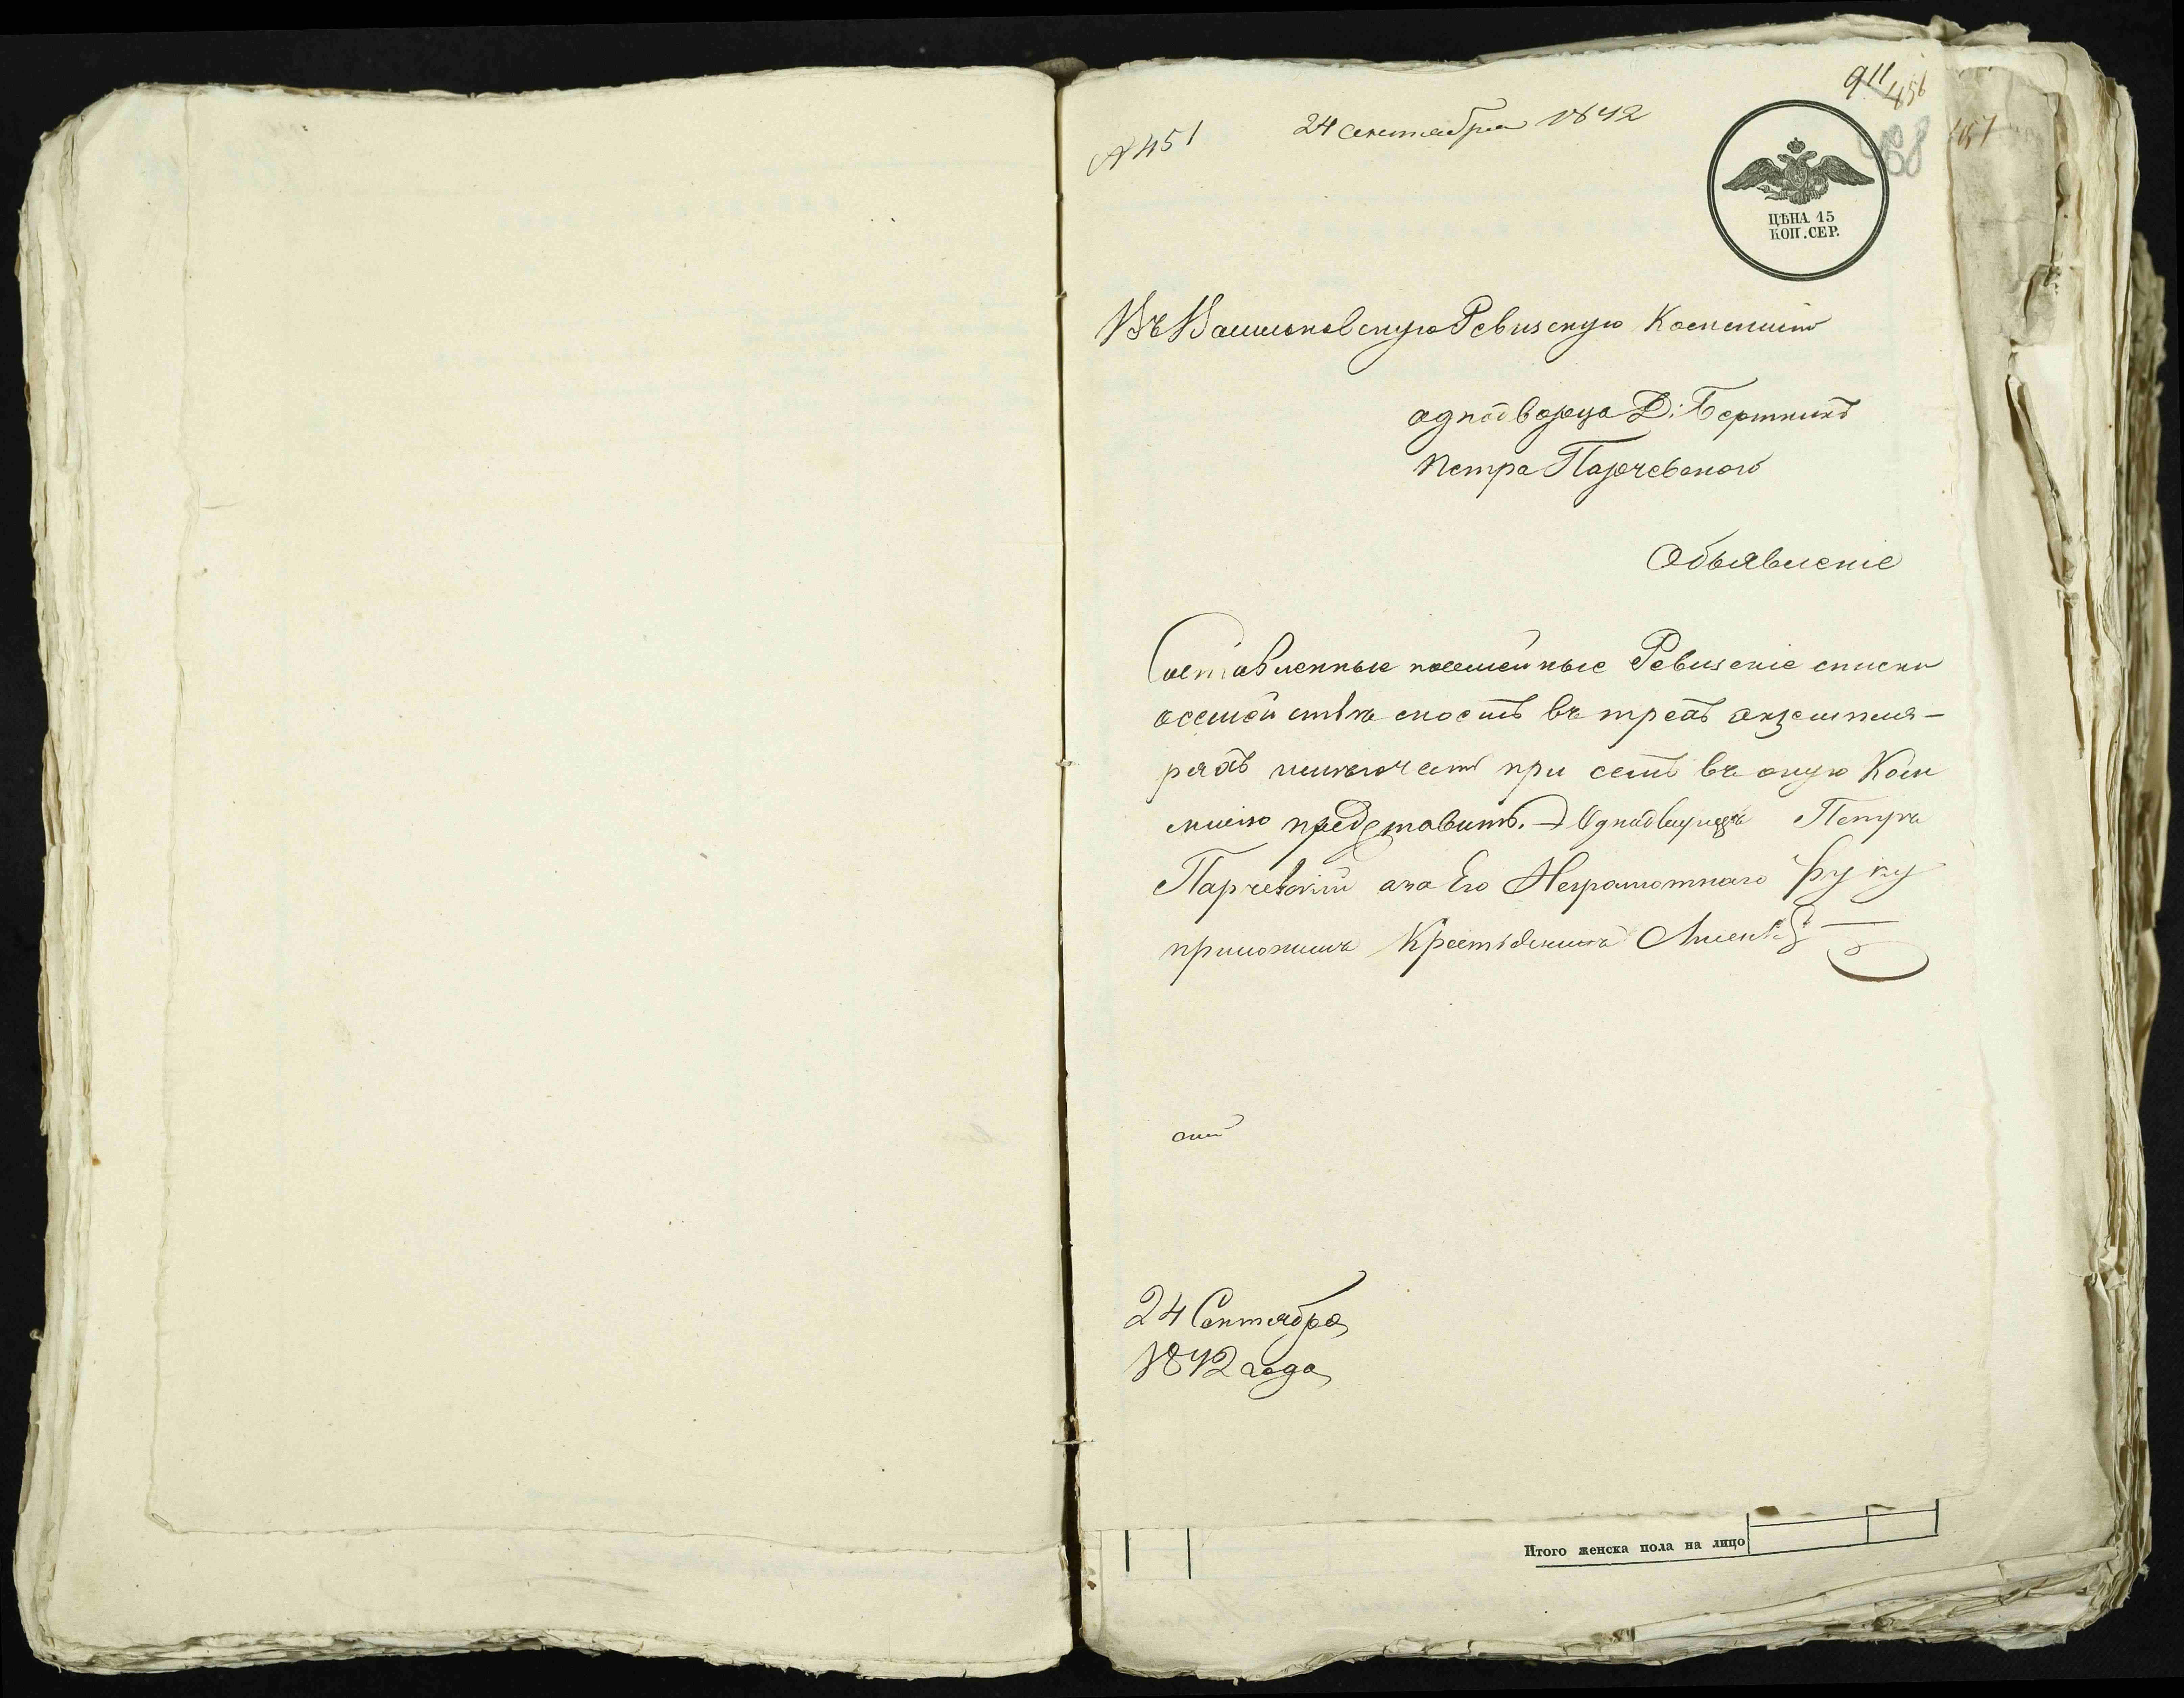 № 451
24 сентября 1842
911
456
458
457
ЦѢНА 15
КОП. СЕР.
Въ Ревизскую Комисию
однодворца Д:
Петра Парчевскаго
Объявленіе
Составленные посемейные Ревизскіе списки
о семействѣ моемъ въ трехъ экземпля-
рахъ при семъ въ оную Ком
мисию представить. Однодворецъ Петръ
Парчевскій а за Его Неграмотнаго руку
приложилъ Крестьянинъ
24 Сентября
1842 года
Итого женска пола на лицо